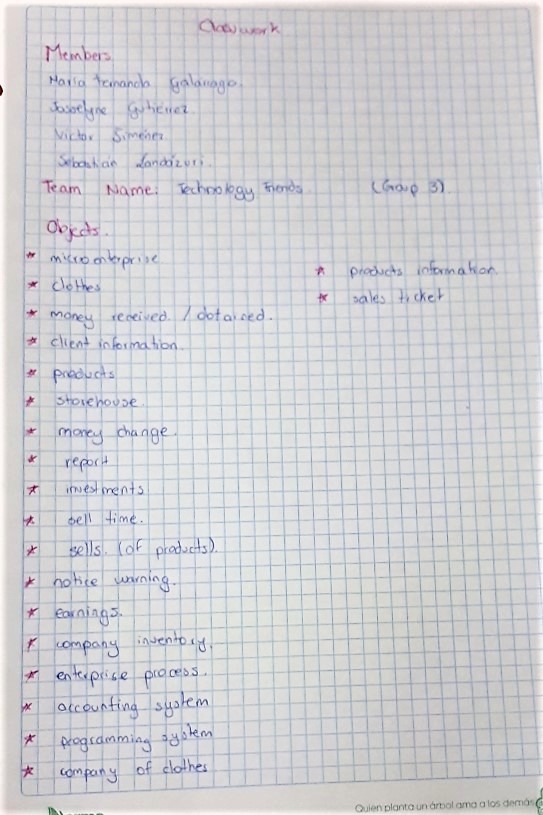 Classwork
Members
María Fernanda Galarraga.
Josselyne Gutiérrez
Victor Simenez
Sebastián Landázuri.
Team Name: Technology Trends. (Group 3).
Objects.
* microenterprise
* clothes
* money received / obtained.
* client information.
* products
* storehouse.
* money change.
* report
* investments
* sell time.
* sells. (of products).
* notice warning.
* earnings.
* company inventory.
* enterprise process.
* accounting system
* programming system
* company of clothes
* products information.
* sales ticket
Quien planta un árbol ama a los demás